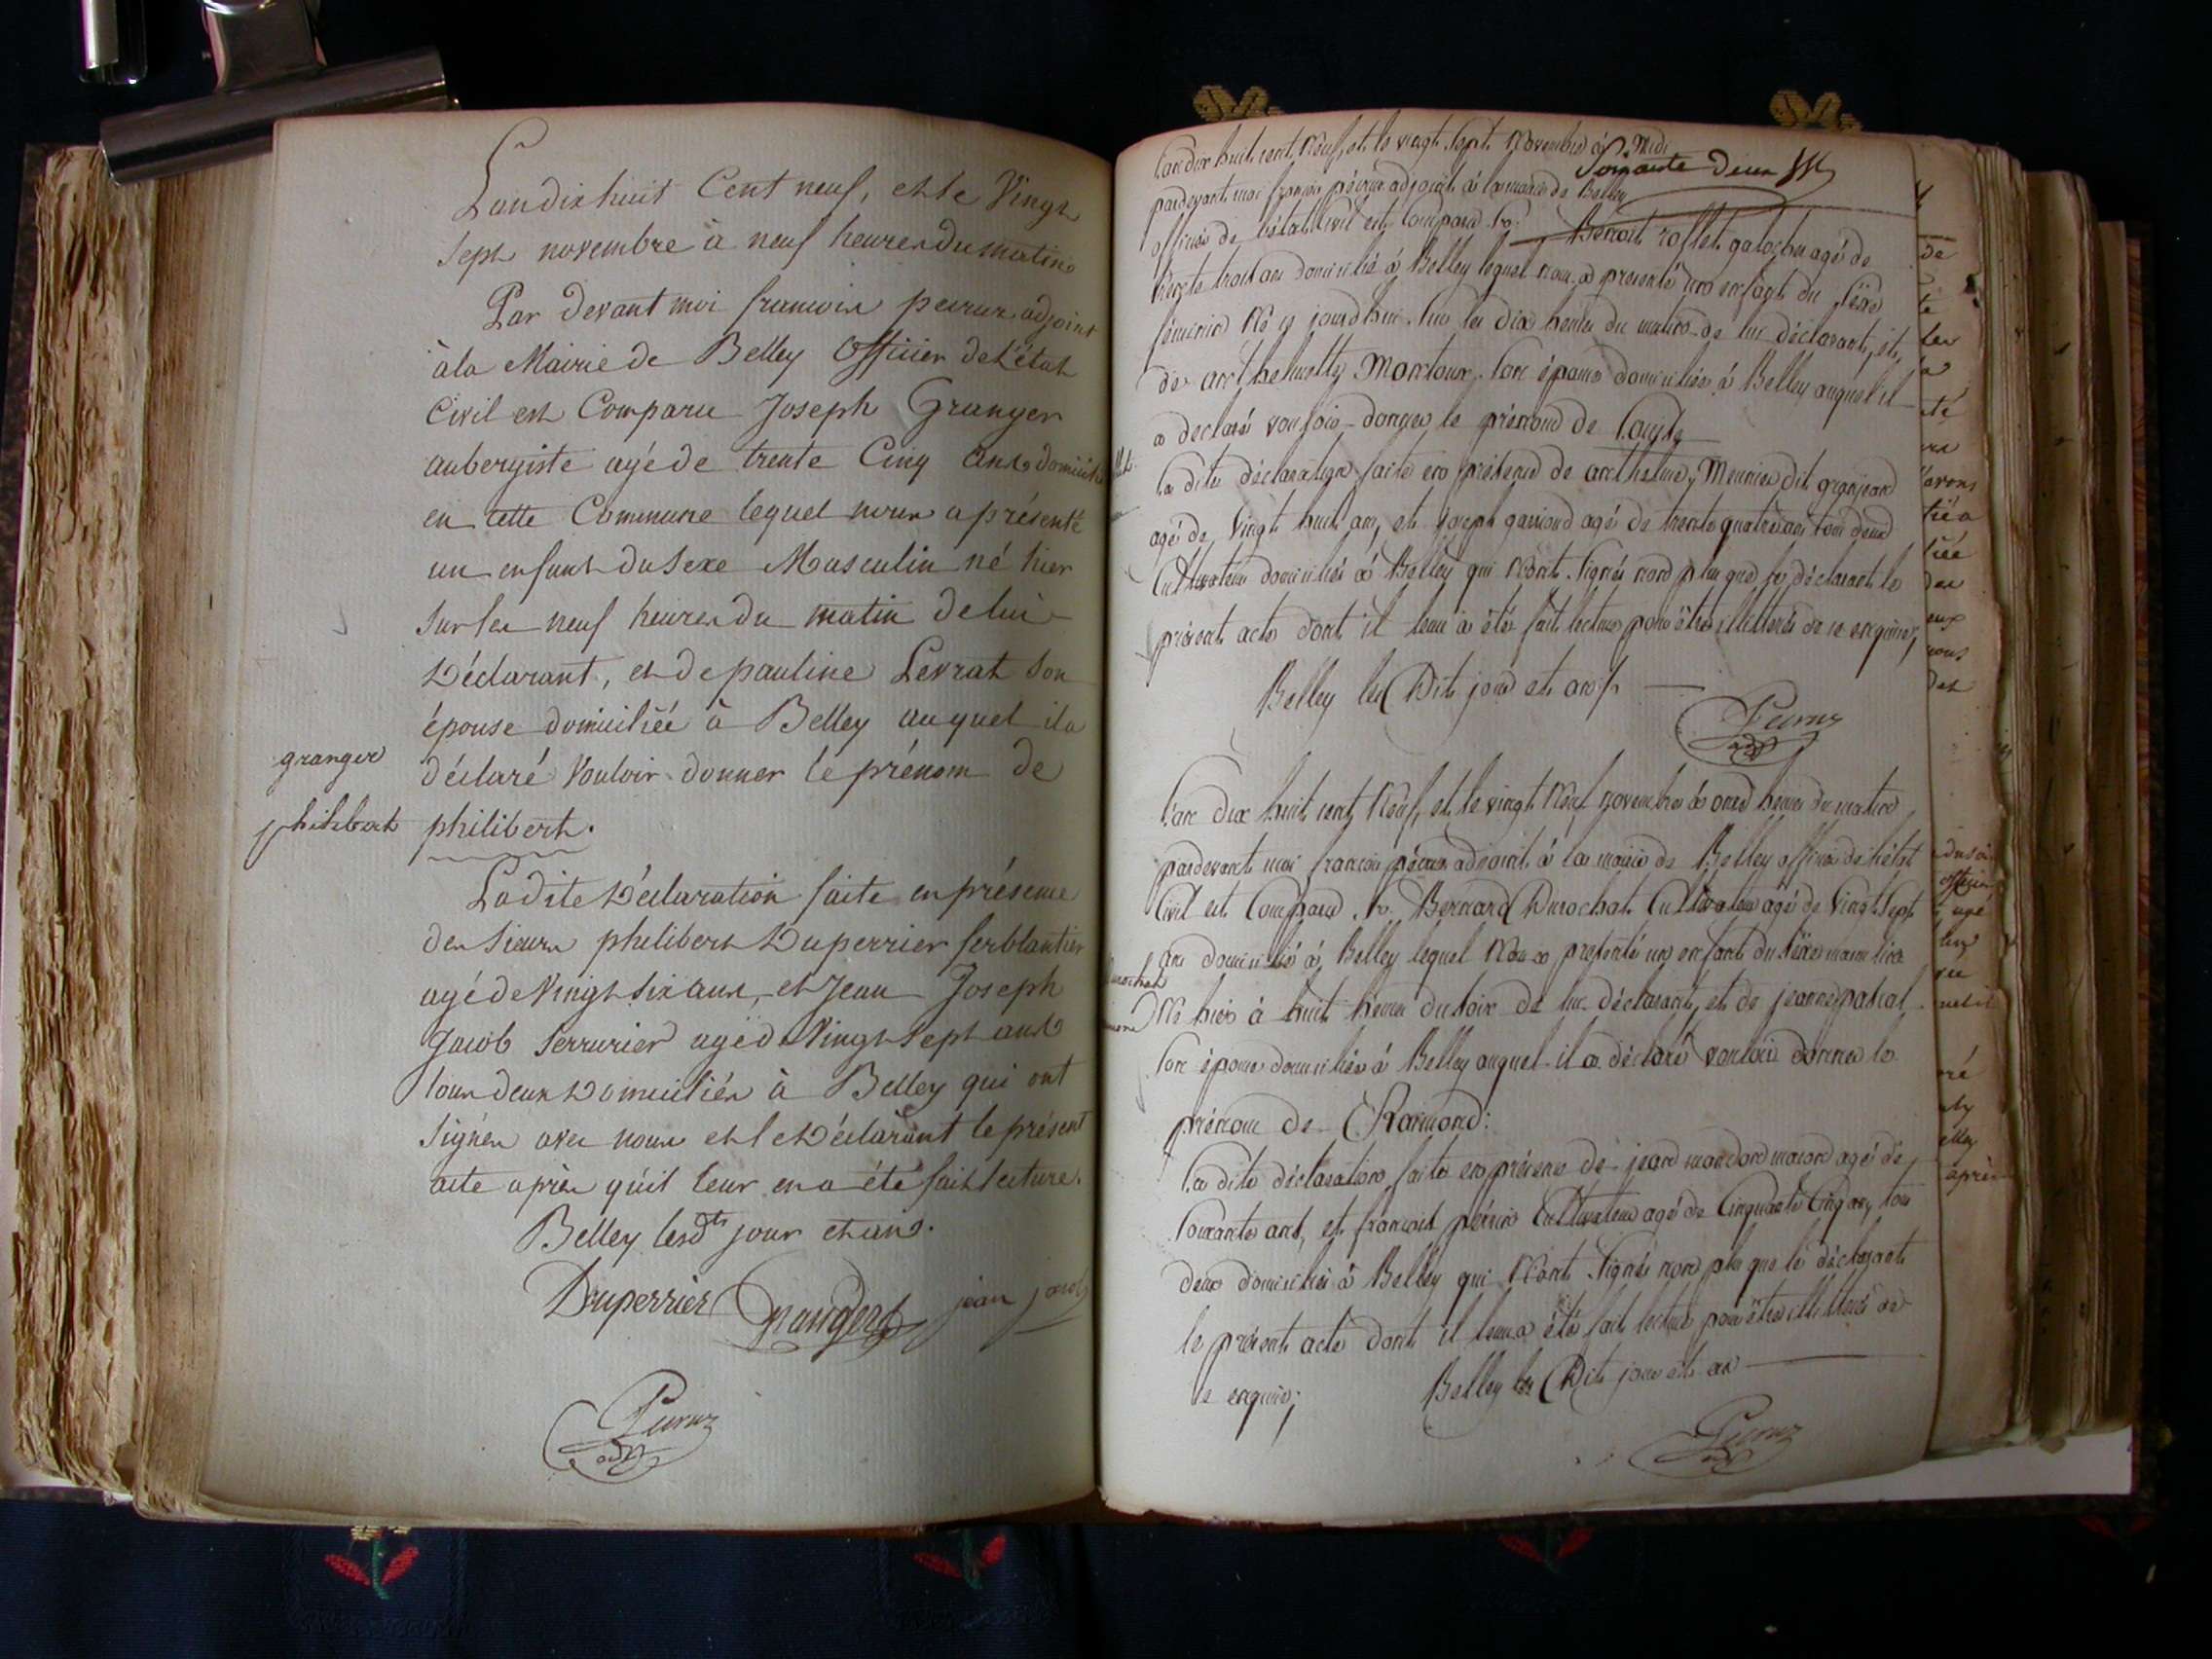 L'an dix huit Cent neuf, et le Vingt
Sept novembre à neuf heures du matin
Par devant moi francois peirus adjoint
à la Mairie de Belley Officier de L'état
Civil est Comparu Joseph Granger
aubergiste agé de trente Cinq ans domicilié
en Cette Commune lequel nous a présenté
un enfant du Sexe Masculin né hier
Sur les neuf heures du matin de lui
Déclarant, et de pauline Levrat Son
épouse domiciliée à Belley auquel il a
déclaré Vouloir donner le prénom de
philibert.
granger
philibert
La dite Déclaration faite en présence
des Sieurs philibert Duperrier ferblantier
agé de Vingt Six ans, et Jean Joseph
Jacob Serrurier agé de Vingt Sept ans
tous deux Domiciliés à Belley qui ont
Signés avec nous et le Déclarant le présent
acte après qu'il leur en a été fait lecture.
Belley lesdts jour et an.
Duperrier Granger jean jacob
adjt
Soixante Deux
L'an dix huit cent Neuf, et le vingt Sept Novembre à Midi
pardevant moi françois adjoint à la mairie de Belley
officier de l'état Civil est Comparu Sr.
Benoit rosset galocher agé de
trente trois ans domicilié à Belley lequel nous a présenté un enfant du Séxe
féminin Né ce jourd'hui Sur les dix heures du matin de lui déclarant, et
de anthelmette Montoux Son épouse domiciliée à Belley auquel il
a declaré vouloir donner le prénom de
la dite déclaration faite en présence de anthelme Meunier dit granjean
agé de Vingt huit ans, et Joseph agé de trente quatre ans tous deux
Cultivateurs domiciliés à Belley qui N'ont Signés non plus que le déclarant le
présent acte dont il leur a été fait lecture pour être illettrés de ce enquis;
Belley les Dits jour et an
adjt
L'an dix huit cent Neuf, et le vingt Neuf novembre à onze heures du matin
pardevant moi francois adjoint à la mairie de Belley officier de l'état
Civil est Comparu Sr. Bernard Durochat Cultivateur agé de Vingt Sept
ans domicilié à Belley lequel Nous a présenté un enfant du Séxe masculin
Né hier à huit heures du Soir de lui déclarant, et de jeanne pascal
Son épouse domiciliée à Belley auquel il a déclaré vouloir donner le
prénom de
la dite déclaration faite en présence de jean maçon agé de
Soixante ans, et francois perrin Cultivateur agé de Cinquante Cinq ans tous
deux domiciliés à Belley qui N'ont Signés non plus que le déclarant
le présent acte dont il leur a été fait lecture pour être illettrés de
ce enquis; Belley les Dits jour et an